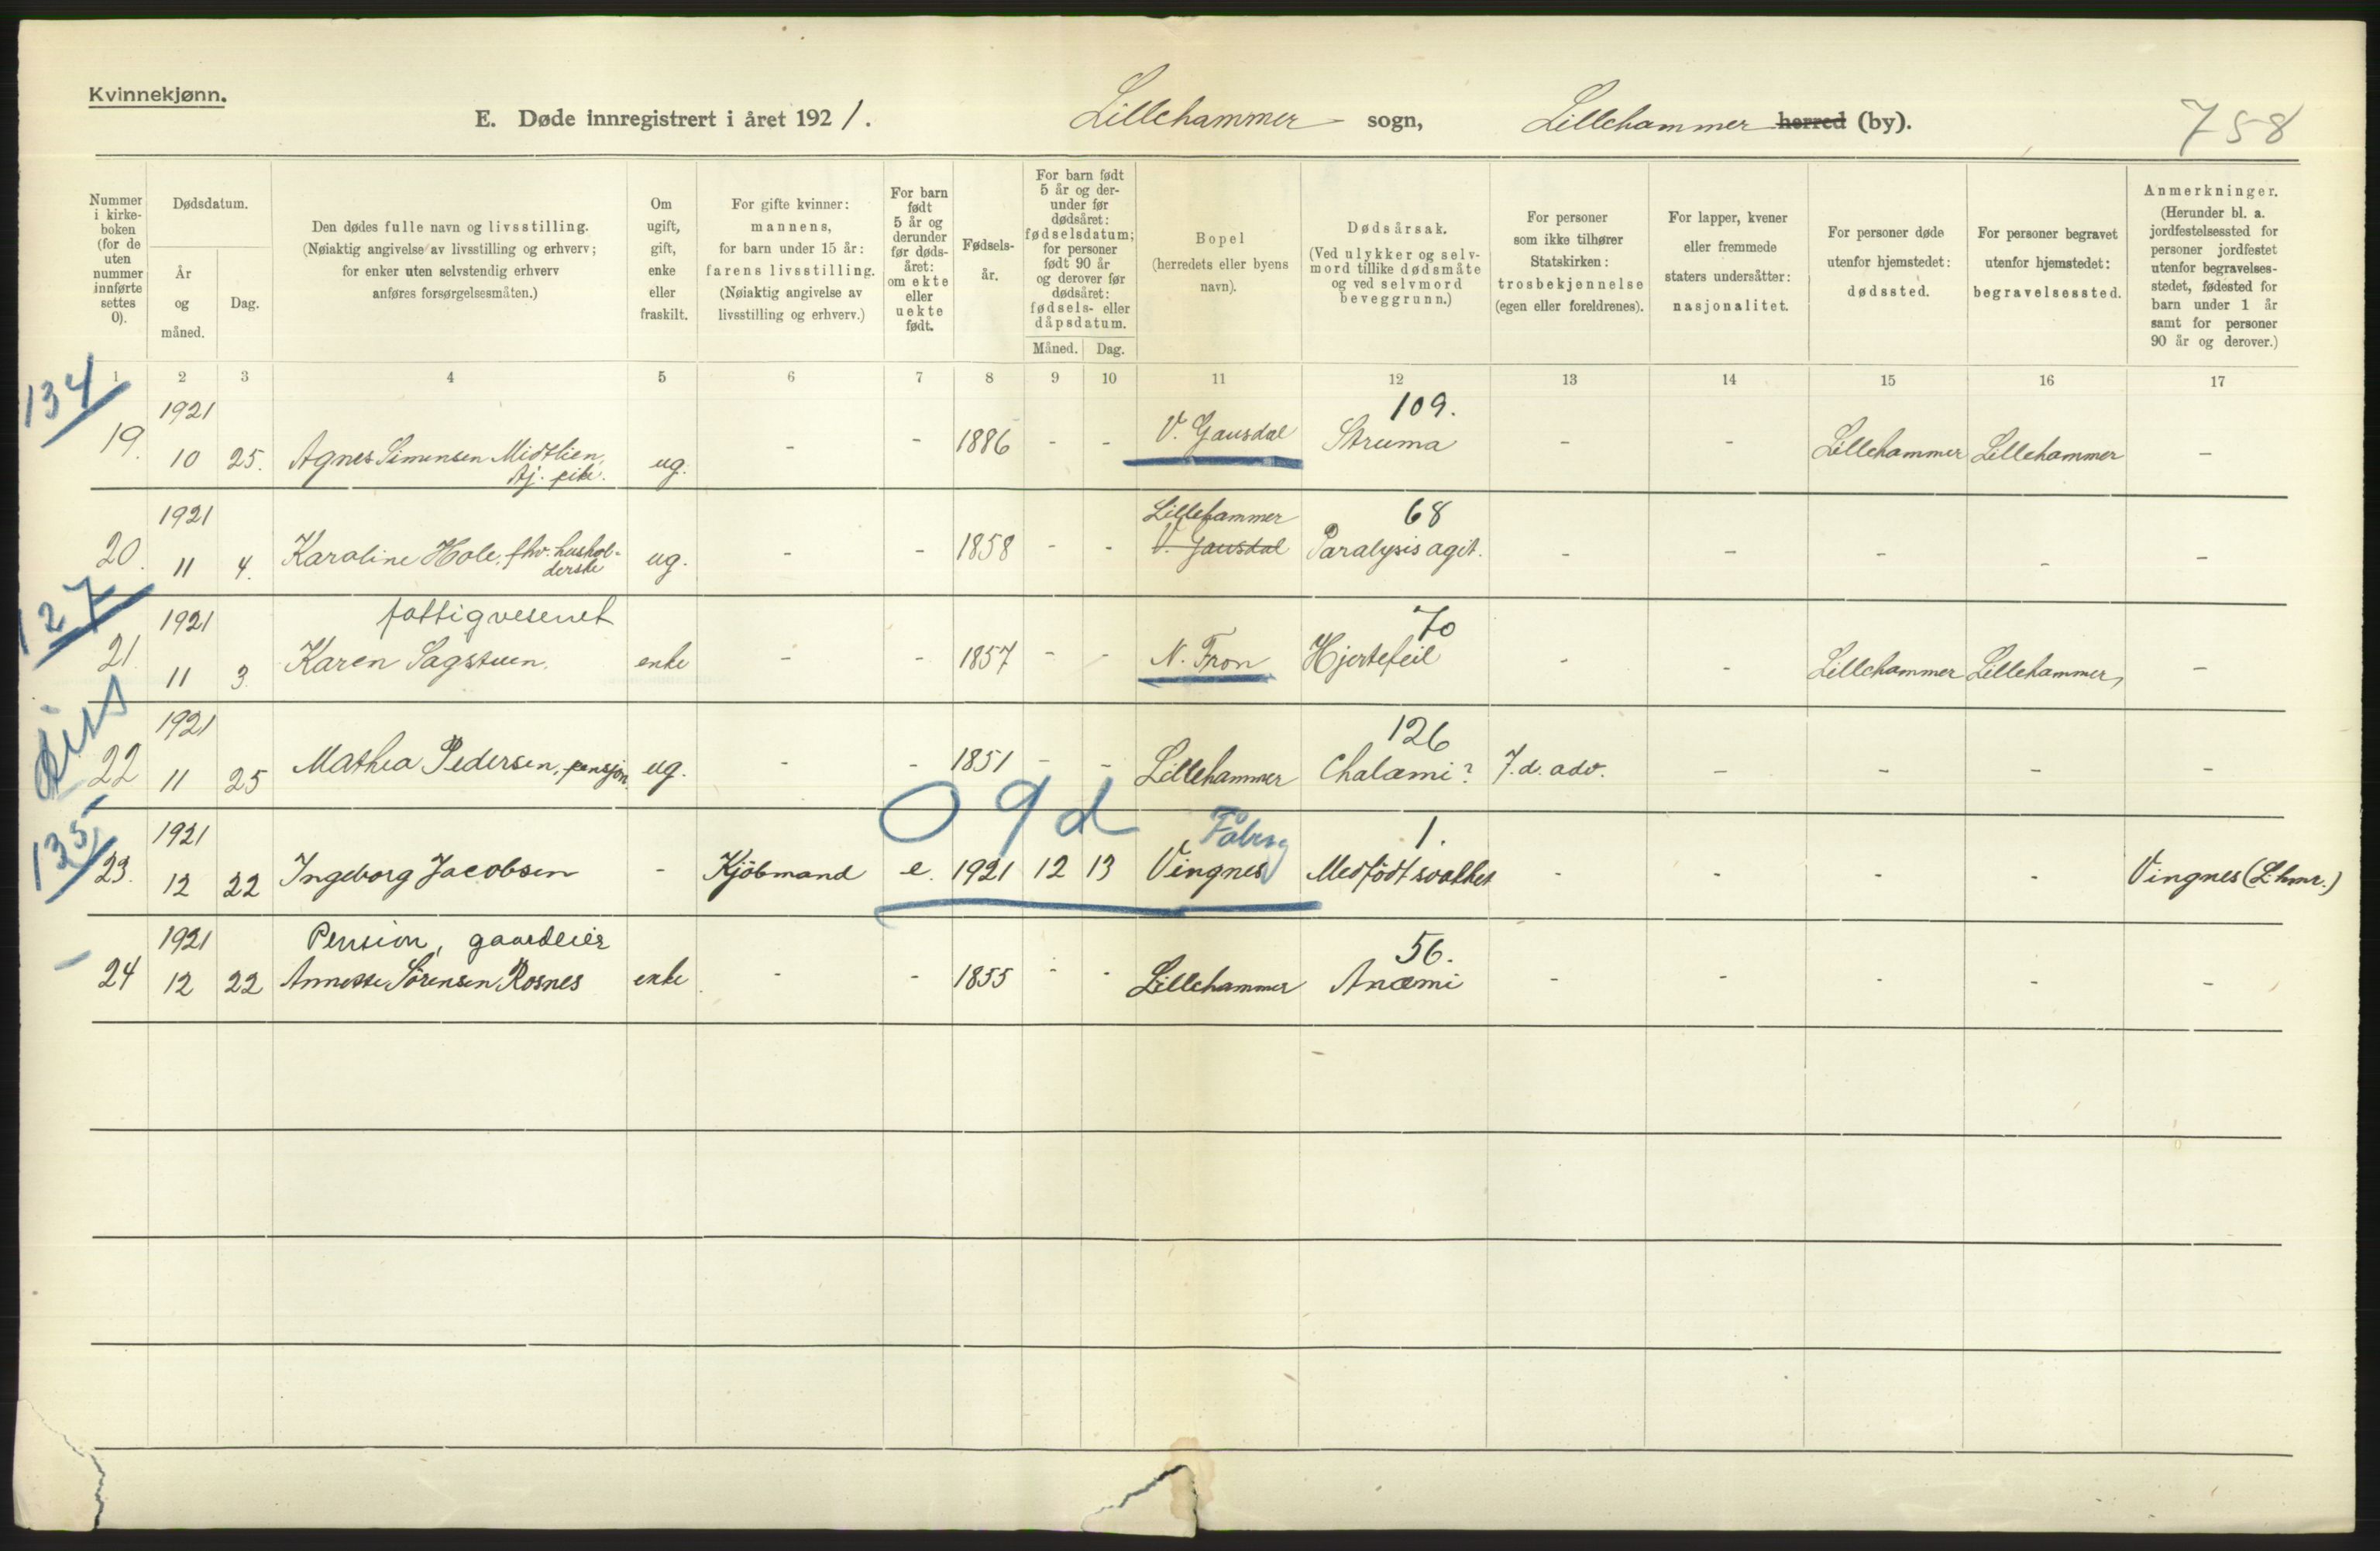 Kvinnekjønn.
E. Døde innregistrert i året 1921. Lillehammer sogn, Lillehammer herred (by). 758
Nummer i kirkeboken (for de uten nummer innførte settes 0).
Dødsdatum.
År og måned.
Dag.
Den dødes fulle navn og livsstilling. (Nøiaktig angivelse av livsstilling og erhverv; for enker uten selvstendig erhverv anføres forsørgelsesmåten.)
Om ugift, gift, enke eller fraskilt.
For gifte kvinner: mannens, for barn under 15 år: farens livsstilling. (Nøiaktig angivelse av livsstilling og erhverv.)
For barn født 5 år og derunder før dødsåret: om ekte eller uekte født.
Fødselsår.
For barn født 5 år og derunder før dødsåret: fødselsdatum; for personer født 90 år og derover før dødsåret: fødsels- eller dåpsdatum.
Måned. Dag.
Bopel (herredets eller byens navn).
Dødsårsak. (Ved ulykker og selvmord tillike dødsmåte og ved selvmord beveggrunn.)
For personer som ikke tilhører Statskirken: trosbekjennelse (egen eller foreldrenes).
For lapper, kvener eller fremmede staters undersåtter: nasjonalitet.
For personer døde utenfor hjemstedet: dødssted.
For personer begravet utenfor hjemstedet: begravelsessted.
Anmerkninger. (Herunder bl. a. jordfestelsessted for personer jordfestet utenfor begravelsesstedet, fødested for barn under 1 år samt for personer 90 år og derover.)
1 2 3 4 5 6 7 8 9 10 11 12 13 14 15 16 17
134
1921 109.
19. 10 25. Agnes Simensen Midtlien, ug. - - 1886 - - V. Gausdal Struma - - Lillehammer Lillehammer -
Tj. pike.
1921 Lillehammer 68
20. 11 4. Karoline Hole, fhv. hushol- ug. - - 1858 - - V. Gausdal Paralysis agit. - - - - -
derske
127
1921 fattigvesenet 70
21. 11 3. Karen Sagstuen. enke - - 1857 - - N. Fron Hjertefeil - - Lillehammer Lillehammer, -
1921 126
22 11 25 Mathea Pedersen, pensjon. ug. - - 1851 - - Lillehammer Chalæmi? 7.d. adv. - - - -
135
09d
1921 Fåberg 1.
23. 12 22 Ingeborg Jacobsen - Kjöbmand e. 1921 12 13 Vingnes Medfödt svakhet - - - - Vingnes (L.hmr.)
1921 Pension, gaardeier 56.
24 12 22 Annette Sörensen Rosnes enke - - 1855 - - Lillehammer Anæmi - - - - -